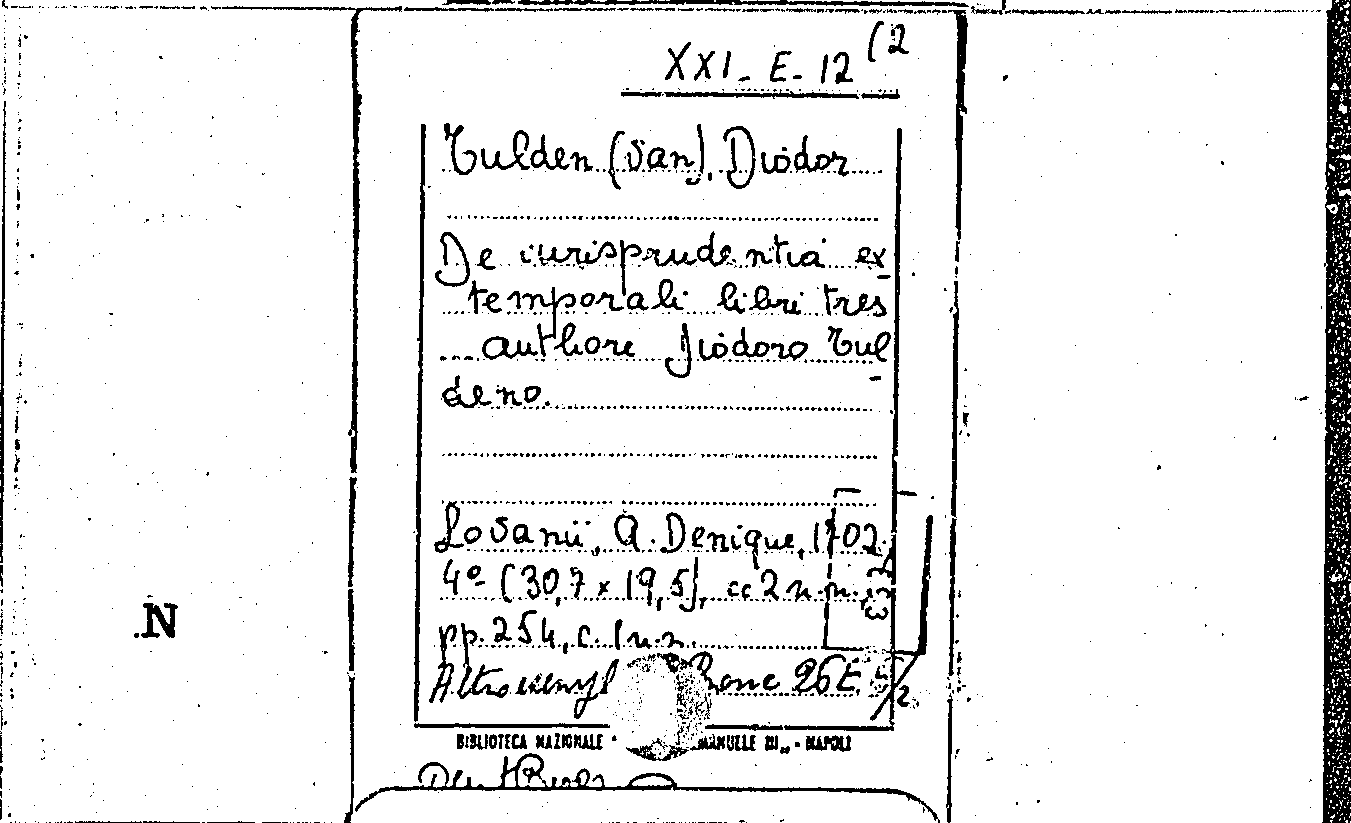 XXI - E - 12 (2
Tulden (van), Diodor
De iurisprudentia ex
temporali libri tres
... authore Diodoro Tul
deno.
Lovanii, A. Denique, 1702.
4º (30,7 x 19,5), cc 2 n.n.,
pp. 254, c. 1 n.n.
Altro 26 E 5/2
BIBLIOTECA NAZIONALE MANUELE III - NAPOLI
N